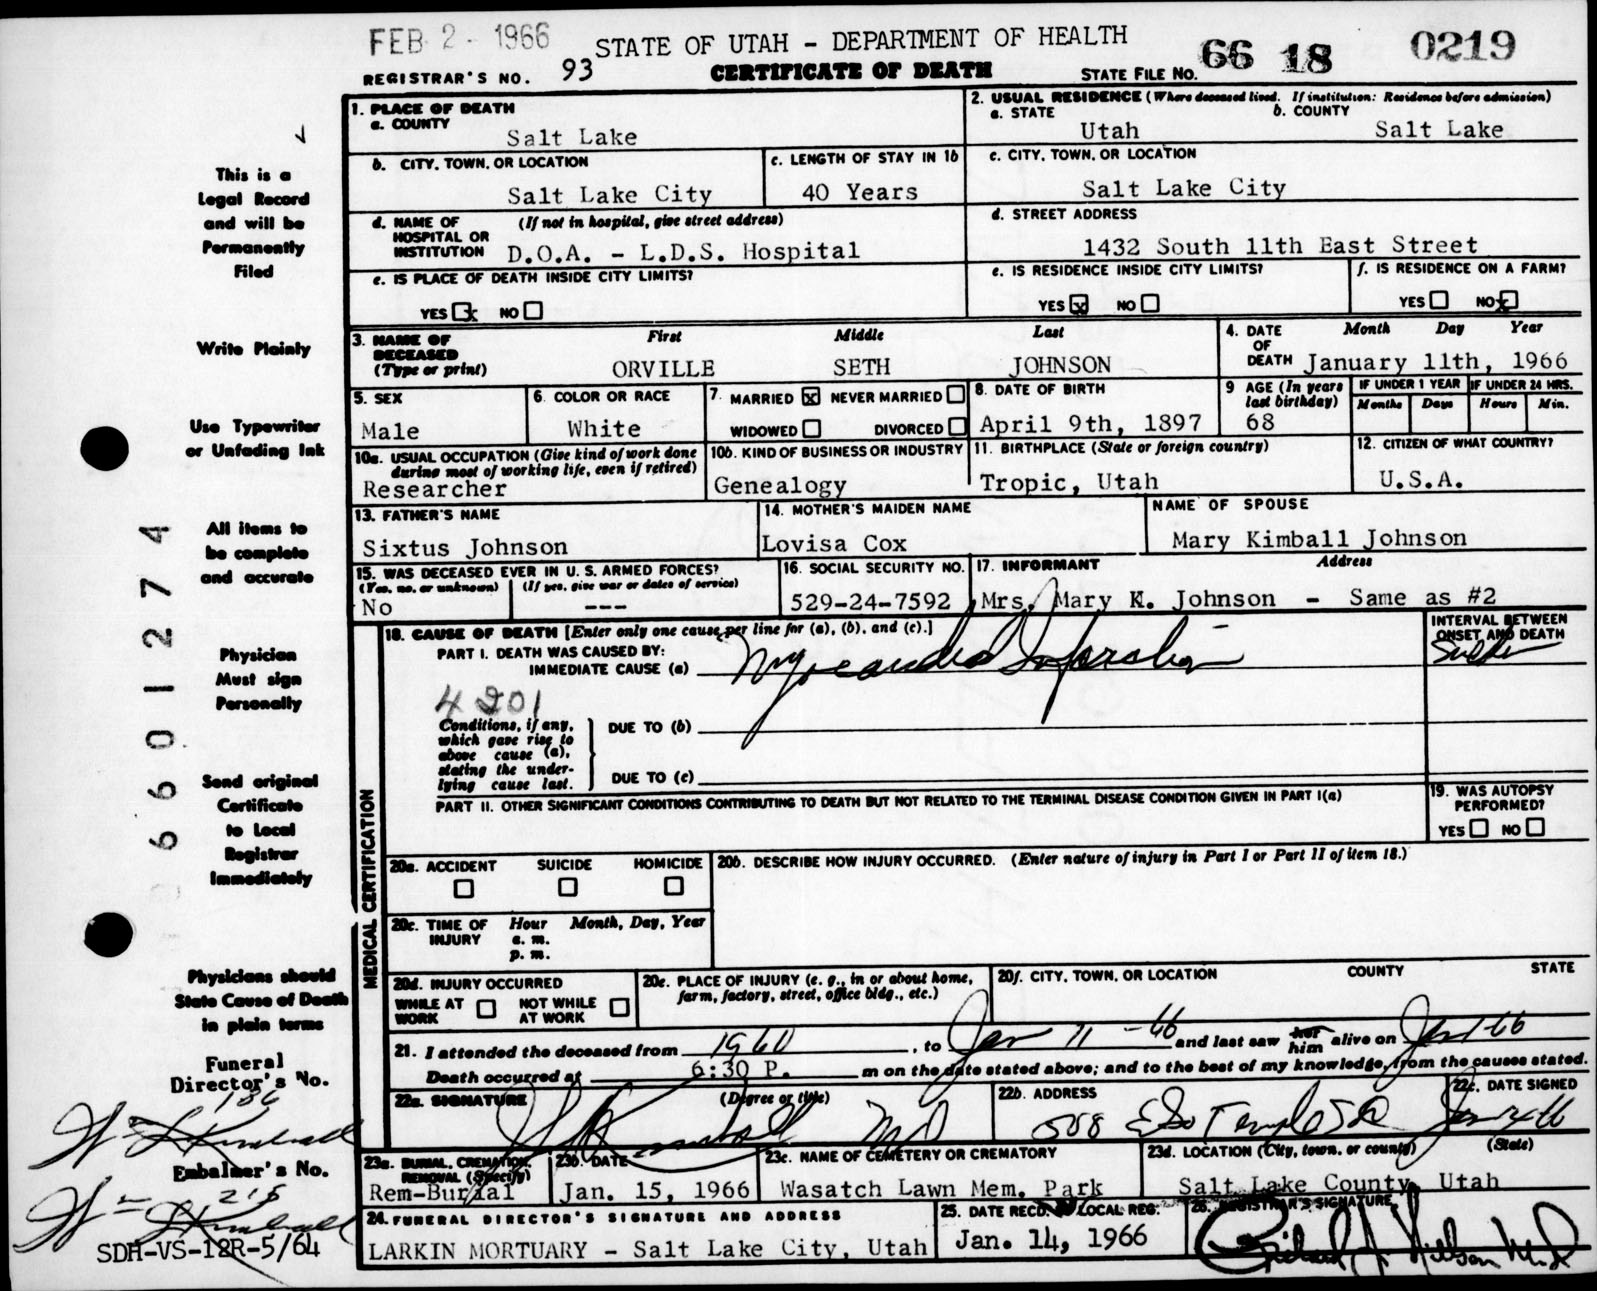 FEB 2 - 1966
STATE OF UTAH - DEPARTMENT OF HEALTH
66 18 0219
REGISTRAR'S NO. 93
CERTIFICATE OF DEATH
STATE FILE NO.
1. PLACE OF DEATH
a. COUNTY
Salt Lake
2. USUAL RESIDENCE (Where deceased lived. If institution: Residence before admission)
a. STATE
Utah
b. COUNTY
Salt Lake
b. CITY, TOWN, OR LOCATION
Salt Lake City
c. LENGTH OF STAY IN 1b
40 Years
c. CITY, TOWN, OR LOCATION
Salt Lake City
d. NAME OF HOSPITAL OR INSTITUTION
(If not in hospital, give street address)
D.O.A. - L.D.S. Hospital
d. STREET ADDRESS
1432 South 11th East Street
e. IS PLACE OF DEATH INSIDE CITY LIMITS?
YES x NO
e. IS RESIDENCE INSIDE CITY LIMITS?
YES x NO
f. IS RESIDENCE ON A FARM?
YES NO x
3. NAME OF DECEASED (Type or print)
First Middle Last
ORVILLE SETH JOHNSON
4. DATE OF DEATH
Month Day Year
January 11th, 1966
5. SEX
Male
6. COLOR OR RACE
White
7. MARRIED x NEVER MARRIED
WIDOWED DIVORCED
8. DATE OF BIRTH
April 9th, 1897
9 AGE (In years last birthday)
68
IF UNDER 1 YEAR
Months Days
IF UNDER 24 HRS.
Hours Min.
10a. USUAL OCCUPATION (Give kind of work done during most of working life, even if retired)
Researcher
10b. KIND OF BUSINESS OR INDUSTRY
Genealogy
11. BIRTHPLACE (State or foreign country)
Tropic, Utah
12. CITIZEN OF WHAT COUNTRY?
U.S.A.
13. FATHER'S NAME
Sixtus Johnson
14. MOTHER'S MAIDEN NAME
Lovisa Cox
NAME OF SPOUSE
Mary Kimball Johnson
15. WAS DECEASED EVER IN U. S. ARMED FORCES?
(Yes, no, or unknown) (If yes, give war or dates of service)
No ---
16. SOCIAL SECURITY NO.
529-24-7592
17. INFORMANT Address
Mrs. Mary K. Johnson - Same as #2
MEDICAL CERTIFICATION
18. CAUSE OF DEATH [Enter only one cause per line for (a), (b), and (c).]
PART I. DEATH WAS CAUSED BY:
IMMEDIATE CAUSE (a) Myocardial Infarction
INTERVAL BETWEEN ONSET AND DEATH
Sudden
4201
Conditions, if any, which gave rise to above cause (a), stating the underlying cause last.
DUE TO (b)
DUE TO (c)
PART II. OTHER SIGNIFICANT CONDITIONS CONTRIBUTING TO DEATH BUT NOT RELATED TO THE TERMINAL DISEASE CONDITION GIVEN IN PART I(a)
19. WAS AUTOPSY PERFORMED?
YES NO
20a. ACCIDENT SUICIDE HOMICIDE
20b. DESCRIBE HOW INJURY OCCURRED. (Enter nature of injury in Part I or Part II of item 18.)
20c. TIME OF INJURY
Hour Month, Day, Year
a. m.
p. m.
20d. INJURY OCCURRED
WHILE AT WORK NOT WHILE AT WORK
20e. PLACE OF INJURY (e. g., in or about home, farm, factory, street, office bldg., etc.)
20f. CITY, TOWN, OR LOCATION COUNTY STATE
21. I attended the deceased from 1960, to Jan 11 -66 and last saw her him alive on Jan 1-66
Death occurred at 6:30 P. m on the date stated above; and to the best of my knowledge, from the causes stated.
22a. SIGNATURE (Degree or title)
Kimball MD
22b. ADDRESS
508 E So Temple
22c. DATE SIGNED
23a. BURIAL, CREMATION, REMOVAL (Specify)
Rem-Burial
23b. DATE
Jan. 15, 1966
23c. NAME OF CEMETERY OR CREMATORY
Wasatch Lawn Mem. Park
23d. LOCATION (City, town, or county) (State)
Salt Lake County, Utah
24. FUNERAL DIRECTOR'S SIGNATURE AND ADDRESS
LARKIN MORTUARY - Salt Lake City, Utah
25. DATE RECD. BY LOCAL REG.
Jan. 14, 1966
26. REGISTRAR'S SIGNATURE
This is a
Legal Record
and will be
Permanently
Filed
Write Plainly
Use Typewriter
or Unfading Ink
All items to
be complete
and accurate
Physician
Must sign
Personally
Send original
Certificate
to Local
Registrar
Immediately
Physicians should
State Cause of Death
in plain terms
Funeral
Director's No.
186
Kimball
Embalmer's No.
Kimball
SDH-VS-12R-5/64
6601274